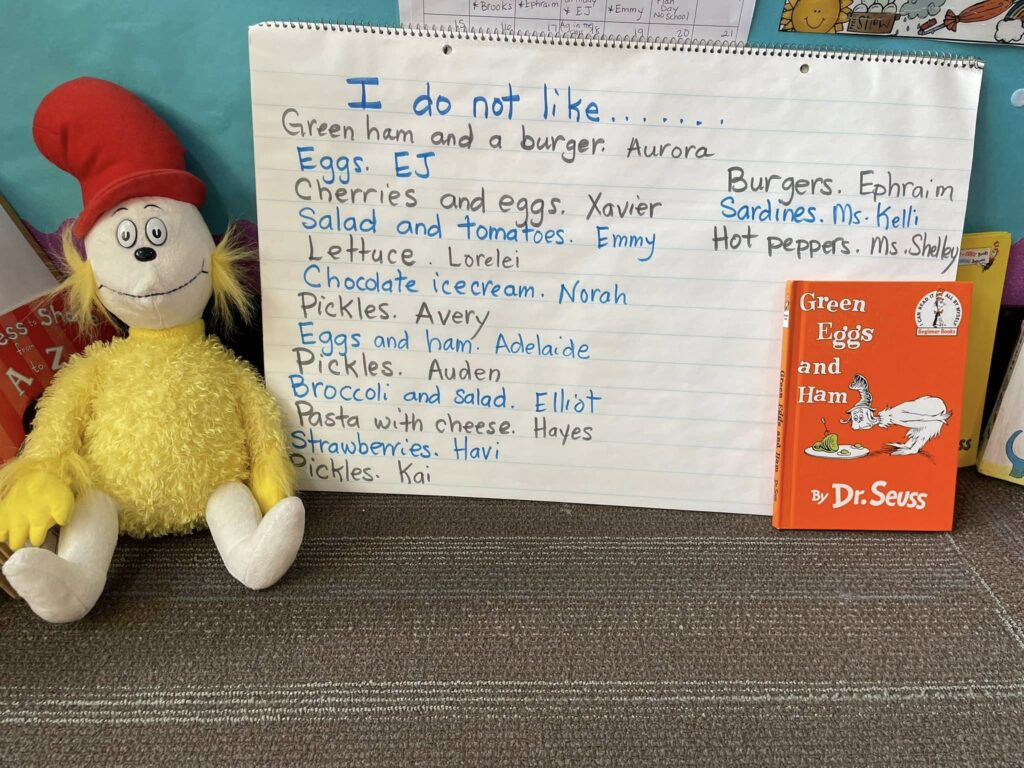 *Brooks *Ephraim * EJ *Emmy Plan Day No School
15 16 17 19 20 21
I do not like.......
Green ham and a burger. Aurora
Eggs. EJ
Cherries and eggs. Xavier
Salad and tomatoes. Emmy
Lettuce. Lorelei
Chocolate icecream. Norah
Pickles. Avery
Eggs and ham. Adelaide
Pickles. Auden
Broccoli and salad. Elliot
Pasta with cheese. Hayes
Strawberries. Havi
Pickles. Kai
Burgers. Ephraim
Sardines. Ms. Kelli
Hot peppers. Ms. Shelley
Green
Eggs
and
Ham
I CAN READ IT ALL BY MYSELF
Beginner Books
By Dr. Seuss
Green Eggs and Ham
ess to Sh
from
A to Z